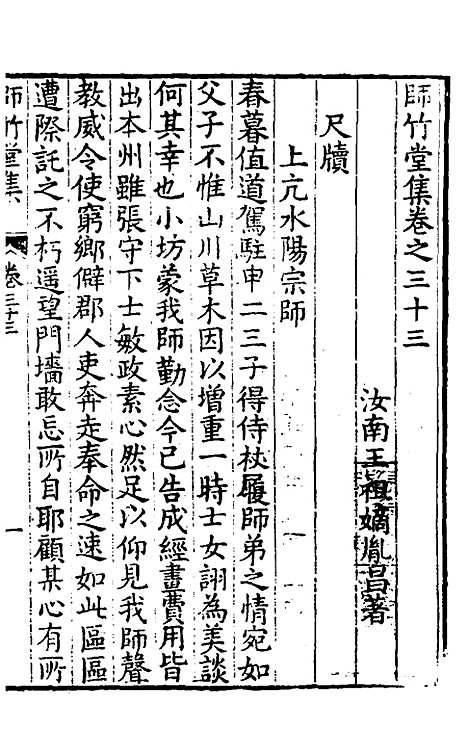 師竹堂集卷之三十三
汝南王祖嫡胤昌著
尺牘
上亢水陽宗師
春暮值道駕駐申二三子得侍杖履師弟之情宛如
父子不惟山川草木因以增重一時士女詡為美談
何其幸也小坊蒙我師勤念今已告成經畫費用皆
出本州雖張守下士敏政素心然足以仰見我師聲
教威令使窮鄉僻郡人吏奔走奉命之速如此區區
遭際託之不朽遥望門墻敢忘所自耶顧某心有所
師竹堂集 卷三十三 一